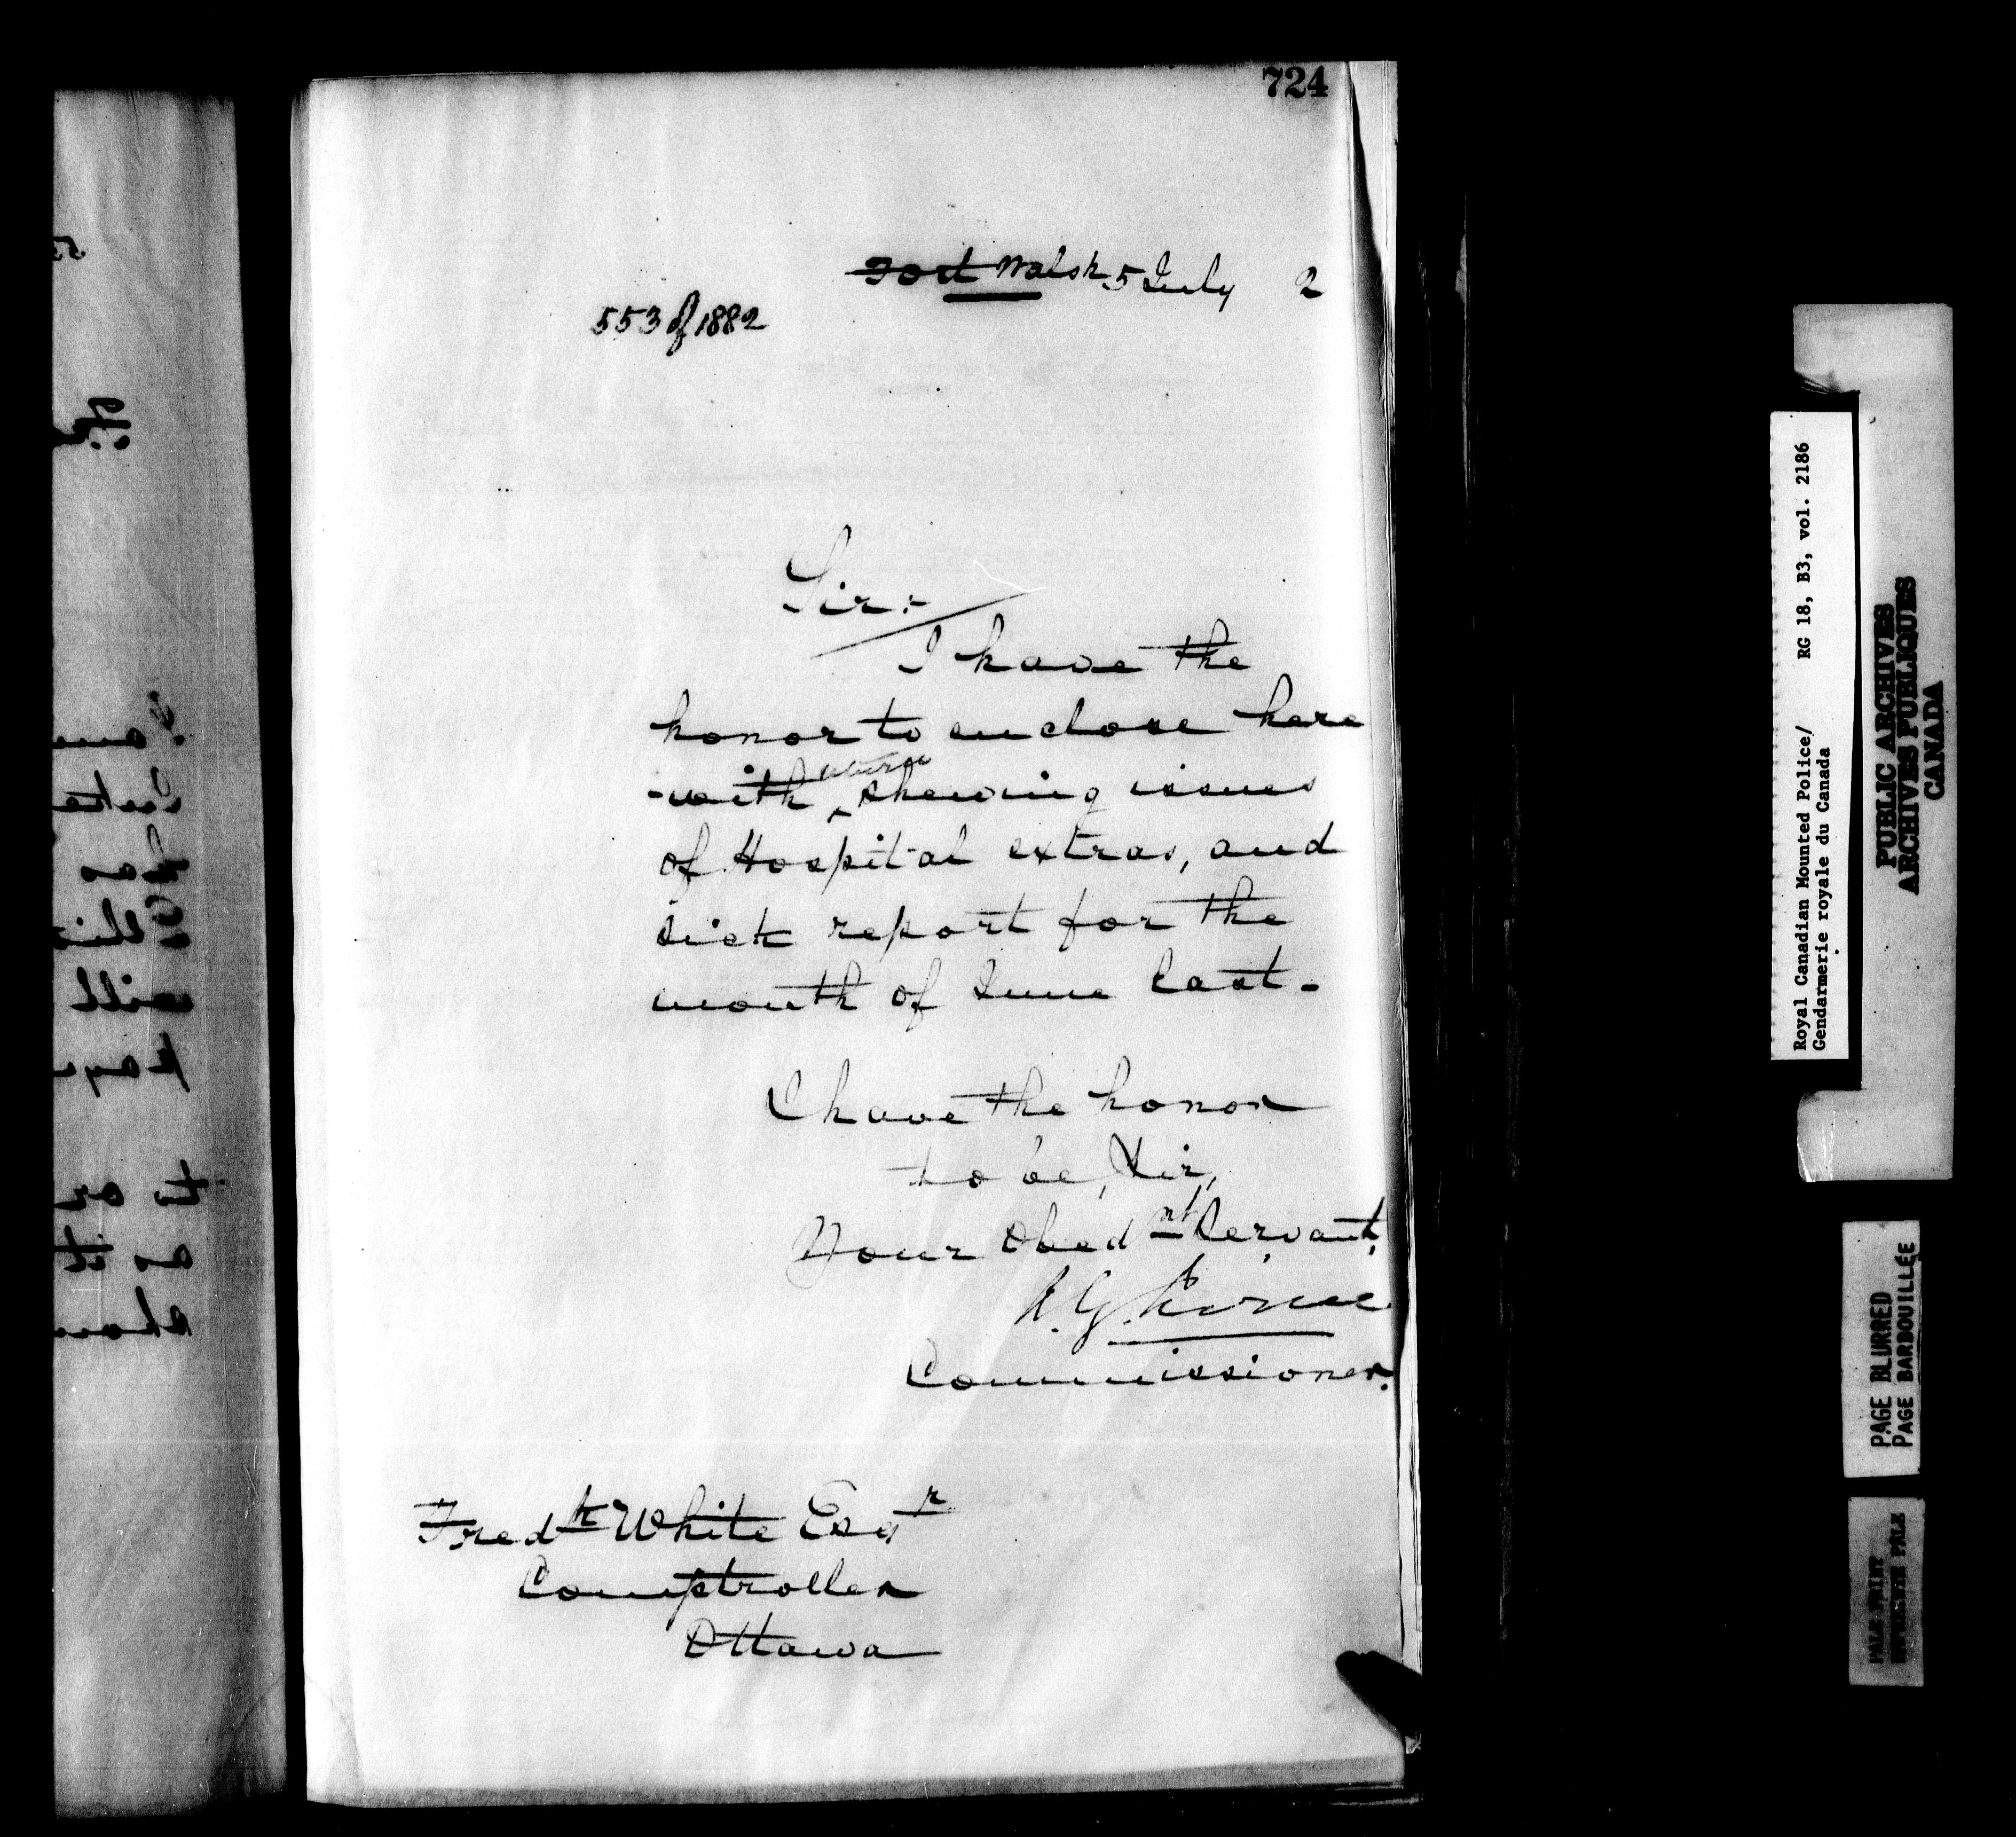 724
Fort Walsh 5 July 2
553 of 1882
Sir:-
I have the
honor to enclose here
-with ^ return shewing issues
of Hospital extras, and
sick report for the
month of June last -
I have the honor
to be, Sir,
Your Obednt Servant,
A.G. Irvine
Commissioner.
Fredk White Esqr
Comptroller
Ottawa
Royal Canadian Mounted Police/ RG 18, B3, vol. 2186
Gendarmerie royale du Canada
PUBLIC ARCHIVES
ARCHIVES PUBLIQUES
CANADA
PAGE BLURRED
PAGE BARBOUILLÉE